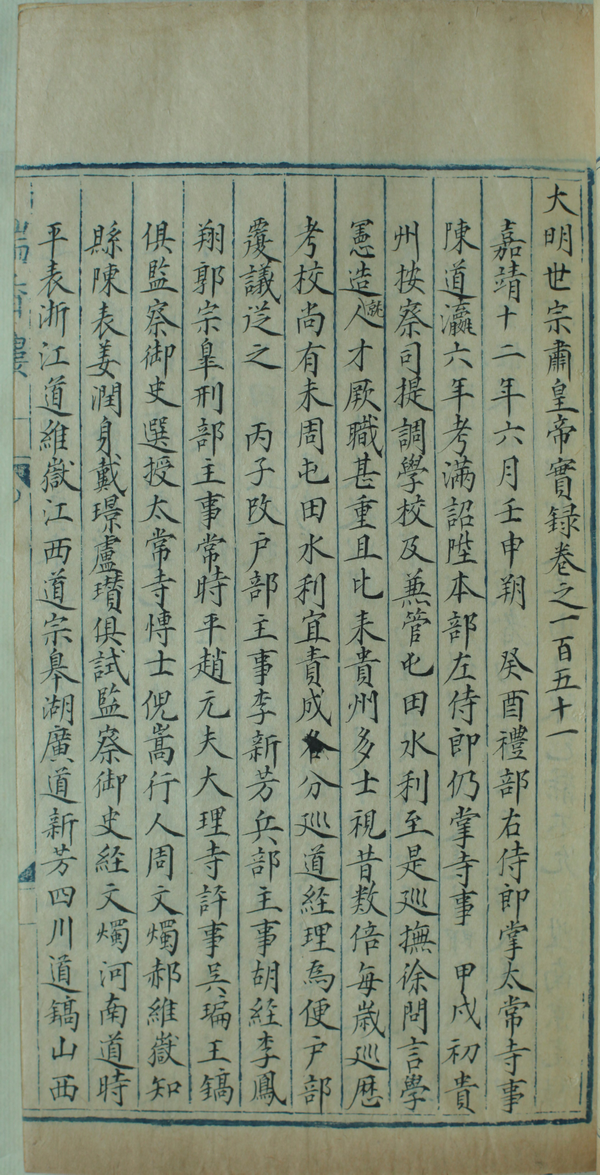 大明世宗肅皇帝實録卷之一百五十一
嘉靖十二年六月壬申朔　癸酉禮部右侍郎掌太常寺事
陳道瀛六年考滿詔陞本部左侍郎仍掌寺事　甲戌初貴
州按察司提調學校及兼管屯田水利至是巡撫徐問言學
憲造就人才厥職甚重且比來貴州多士視昔数倍每歲巡歷
考校尚有未周屯田水利宜責成各分巡道經理為便户部
覆議從之　丙子改户部主事李新芳兵部主事胡經李鳳
翔郭宗皐刑部主事常時平趙元夫大理寺評事吳㻞王鎬
俱監察御史選授太常寺博士倪嵩行人周文燭郝維嶽知
縣陳表姜潤身戴璟盧瓚俱試監察御史經文燭河南道時
平表浙江道維嶽江西道宗皐湖廣道新芳四川道鎬山西